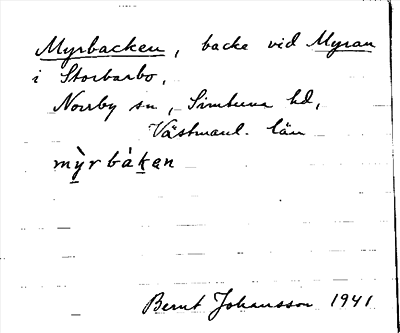 Myrbacken, backe vid Myran
i Storbarbo,
Norrby sn, Simtuna hd,
Västmanl. län
mỳrbàkan
Bernt Johansson 1941